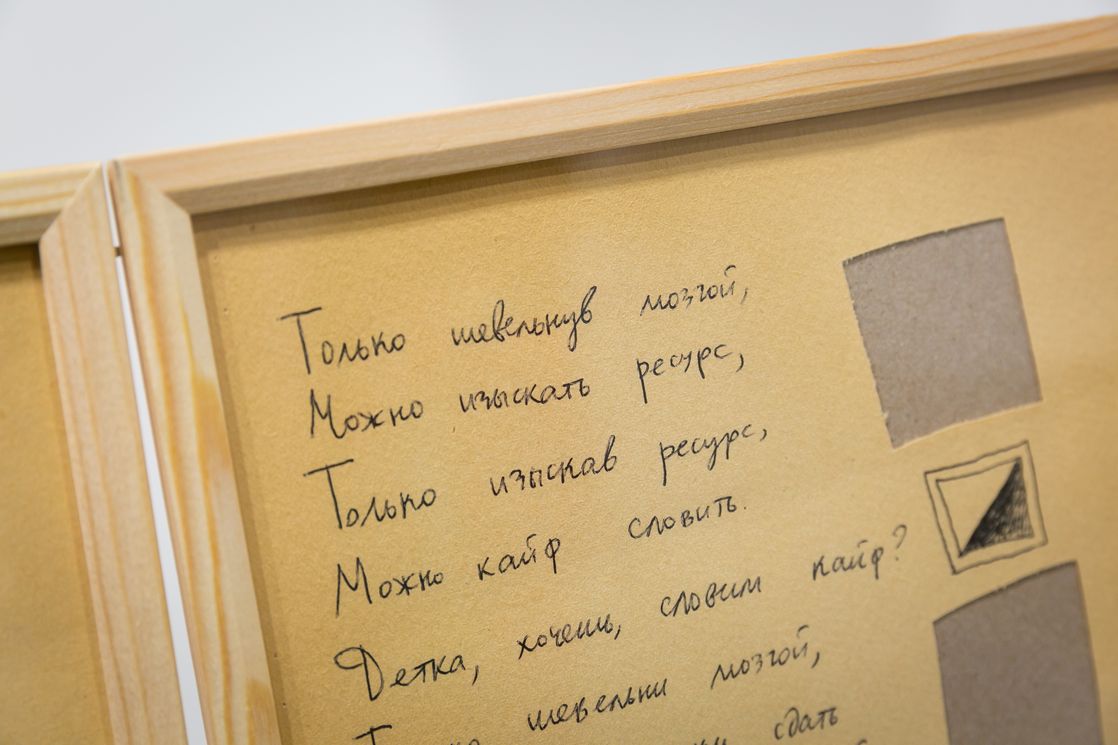 Только шевельнув мозгой,
Можно изыскать ресурс,
Только изыскав ресурс,
Можно кайф словить.
Детка, хочешь, словим кайф?
шевельни мозгой,
сдать